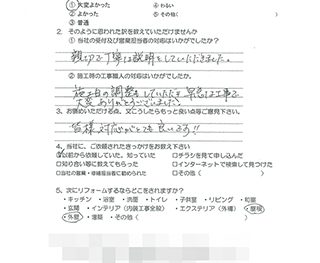 ① 大変よかった ④ わるい
② よかった ⑤ その他(
③ 普通
2. そのように思われた訳を教えていただけませんか
① 当社の受付及び営業担当者の対応はいかがでしたか?
親切で丁寧に説明をしていただきました。
② 施工時の工事職人の対応はいかがでしたか。
施工日の調整もしていただき 早急に工事で
大変ありがとうございました。
3. お褒めいただける点、又こうしたらもっと良い点等ご意見下さい。
皆様 対応がとても良いです!!
4. 当社に、ご依頼されたきっかけをお教え下さい
以前から依頼していた、知っていた □チラシを見て申し込んだ
□知り合い等に教えてもらった □インターネットで検索して見つけた
□当社の営業・修繕担当者に勧められた □その他(
5. 次にリフォームするならどこをされますか?
・キッチン ・浴室 ・洗面 ・トイレ ・子供室 ・リビング ・和室
・玄関 ・インテリア(内装工事全般) ・エクステリア(外構) ・屋根
・外壁 ・増築 ・その他(